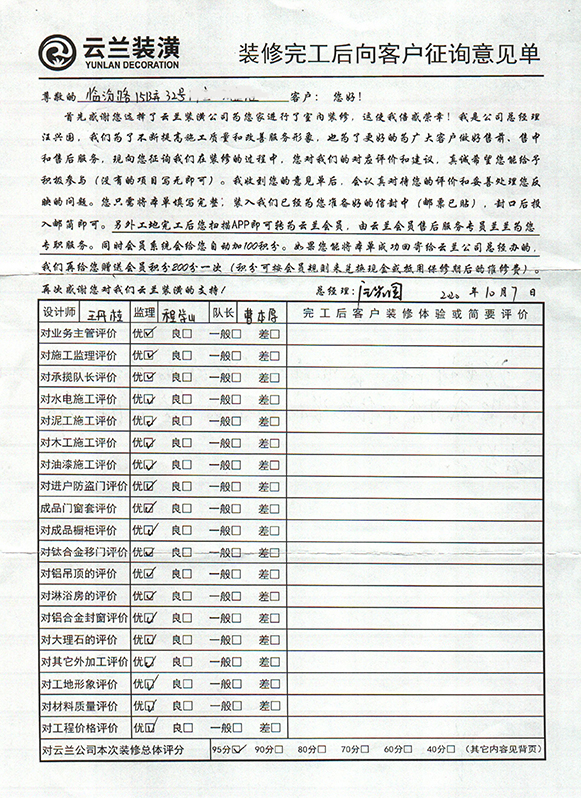 云兰装潢
YUNLAN DECORATION
装修完工后向客户征询意见单
尊敬的 临汾路15弄32号 客户：您好！
首先感谢您选择了云兰装潢公司为您家进行了室内装修，这使我倍感荣幸！我是公司总经理
汪兴国，我们为了不断提高施工质量和改善服务形象，也为了更好的为广大客户做好售前、售中
和售后服务，现向您征询我们在装修的过程中，您对我们的对应评价和建议，真诚希望您能给予
积极参与（没有的项目写无即可）。我收到您的意见单后，会认真对待您的评价和妥善处理您反
映的问题。您只需将本单填写完整，装入我们已经为您准备好的信封中（邮票已贴），封口后投
入邮筒即可。另外工地完工后您扫描APP即可转为云兰会员，由云兰会员售后服务专员兰兰为您
专职服务。同时会员系统会给您自动加100积分。如果您能将本单成功回寄给云兰公司总经办的，
我们再给您赠送会员积分200分一次（积分可按会员规则来兑换现金或抵用保修期后的维修费）。
再次感谢您对我们云兰装潢的支持！ 总经理：汪兴国 2020 年 10 月 7 日
设计师 王丹 监理 队长 曹 完工后客户装修体验或简要评价
对业务主管评价 优☑ 良□ 一般□ 差□
对施工监理评价 优☑ 良□ 一般□ 差□
对承揽队长评价 优☑ 良□ 一般□ 差□
对水电施工评价 优☑ 良□ 一般□ 差□
对泥工施工评价 优☑ 良□ 一般□ 差□
对木工施工评价 优☑ 良□ 一般□ 差□
对油漆施工评价 优☑ 良□ 一般□ 差□
对进户防盗门评价 优☑ 良□ 一般□ 差□
成品门窗套评价 优☑ 良□ 一般□ 差□
对成品橱柜评价 优☑ 良□ 一般□ 差□
对钛合金移门评价 优☑ 良□ 一般□ 差□
对铝吊顶的评价 优☑ 良□ 一般□ 差□
对淋浴房的评价 优☑ 良□ 一般□ 差□
对铝合金封窗评价 优☑ 良□ 一般□ 差□
对大理石的评价 优☑ 良□ 一般□ 差□
对其它外加工评价 优☑ 良□ 一般□ 差□
对工地形象评价 优☑ 良□ 一般□ 差□
对材料质量评价 优☑ 良□ 一般□ 差□
对工程价格评价 优☑ 良□ 一般□ 差□
对云兰公司本次装修总体评分 95分☑ 90分□ 80分□ 70分□ 60分□ 40分□ （其它内容见背页）